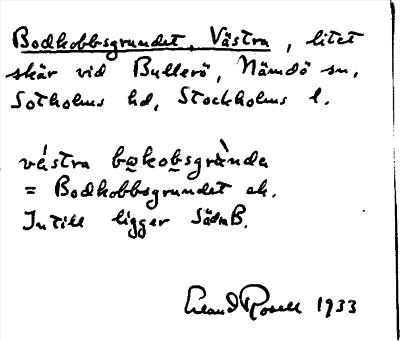 Bodkobbsgrundet, Västra, litet
skär vid Bullerö, Nämdö sn,
Sotholms hd, Stockholms l.
västra bo̲kob̲sgrànda
= Bodkobbsgrundet ek.
Intill ligger SödraB.
Erland Rosell 1933